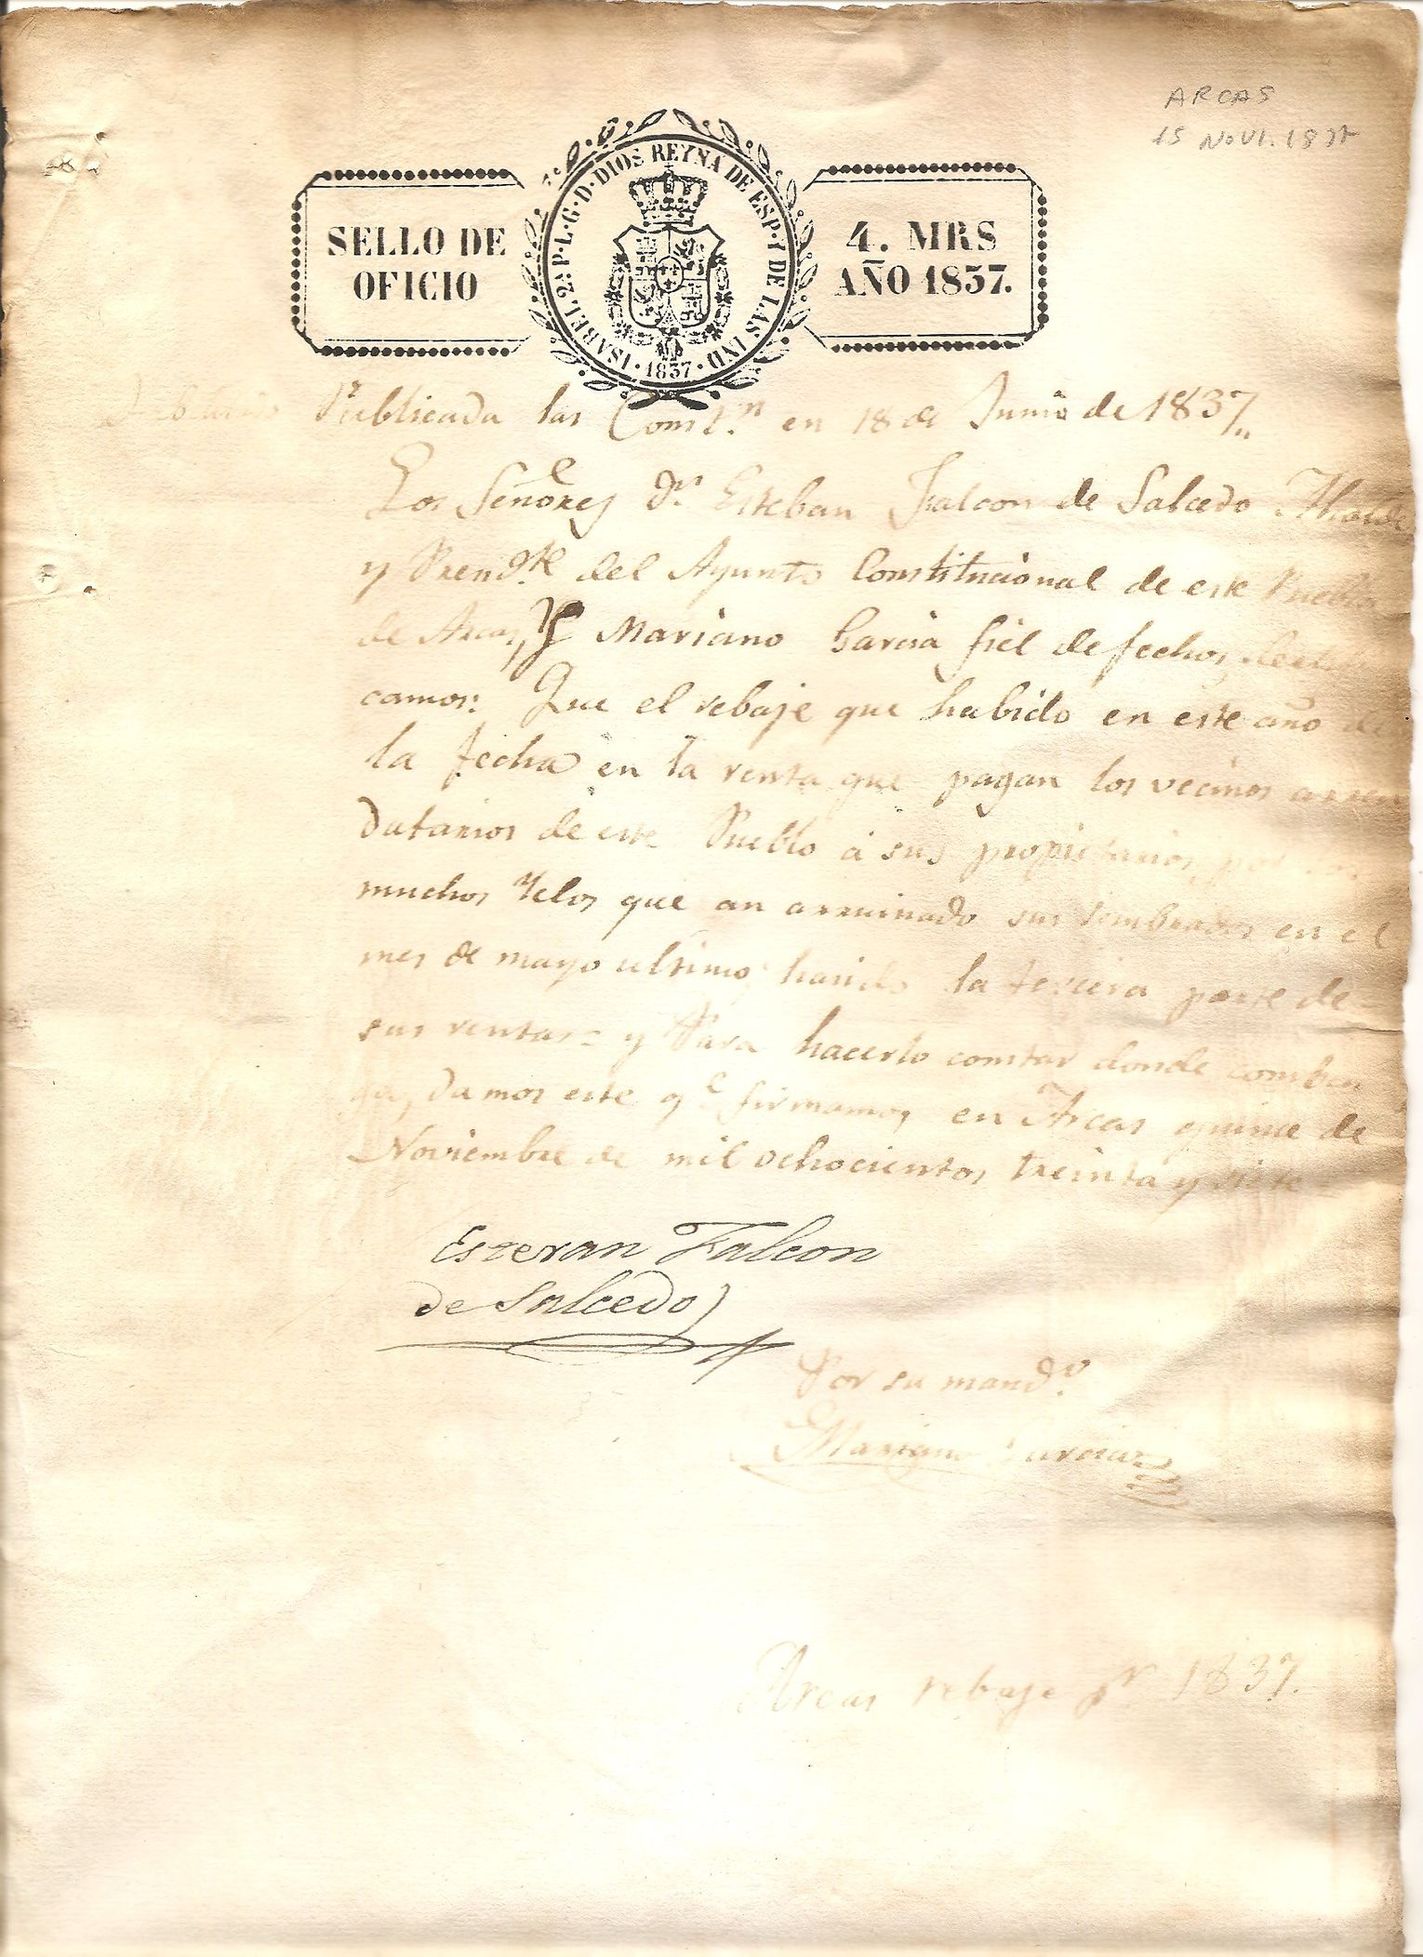 ARCAS
15 NOVI. 1837
SELLO DE
OFICIO
ISABEL 2ª P. L. G. D. DIOS REYNA DE ESP. Y DE LAS IND.
1837
4. MRS
AÑO 1837.
Publicada las Const.n en 18 de Junio de 1837,,
Los Señores Dn Esteban Falcon de Salcedo Alcalde
y Presid.te del Ayunto Constitucional de este Pueblo
de Arcas, Y Mariano Garcia fiel de fechos,
camos: Que el rebaje que habido en este año de
la fecha en la renta que pagan los vecinos arren
datarios de este Pueblo á sus propietarios, por los
muchos Yelos que an arruinado sus sembrados en el
mes de mayo ultimo, la tercera parte de
sus rentas = y Para hacerlo constar donde comben
ga, damos este q.e firmamos en Arcas quince de
Noviembre de mil ochocientos treinta y siete
Estevan Falcon
de Salcedo
Por su mand.o
Mariano Garcia
Arcas rebaje pr 1837.